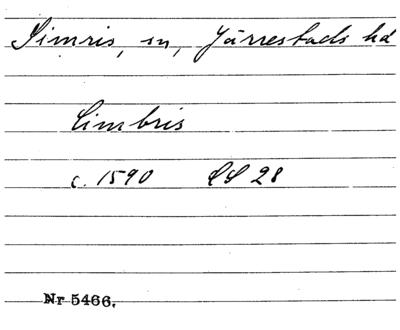 Simris, sn, Järrestads hd
Cimbris
c. 1590 LS 28
Nr 5466.